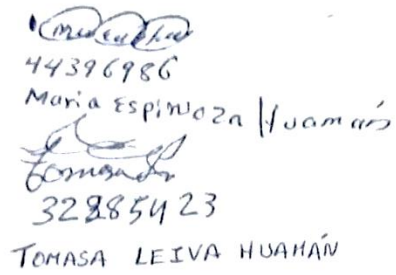 44396986
Maria Espinoza Huamán
32285423
TOMASA LEIVA HUAMÁN